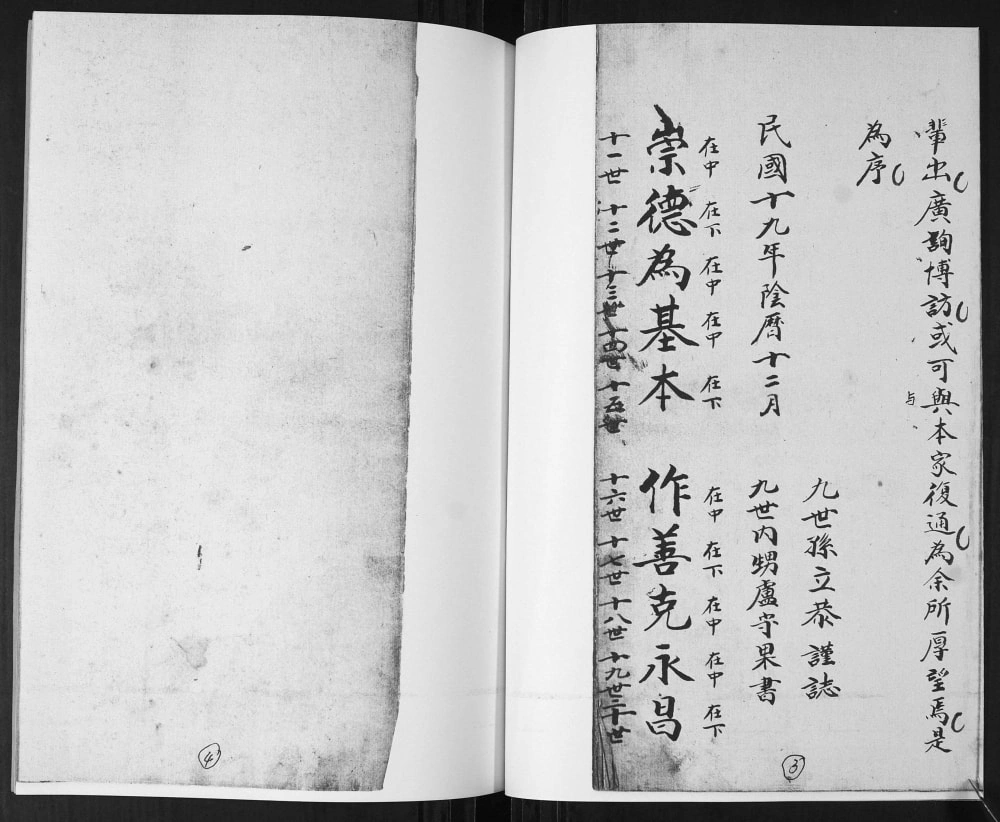 輩出廣詢博訪或可與本家復通為余所厚望焉是
与
為序
九世孫立恭謹誌
民國十九年陰曆十二月
九世内甥盧守果書
在中 在下 在中 在中 在下
在中 在下 在中 在中 在下
崇德為基本
作善克永昌
十一世 十二世 十三世 十四世 十五世
十六世 十七世 十八世 十九世 二十世
3
4